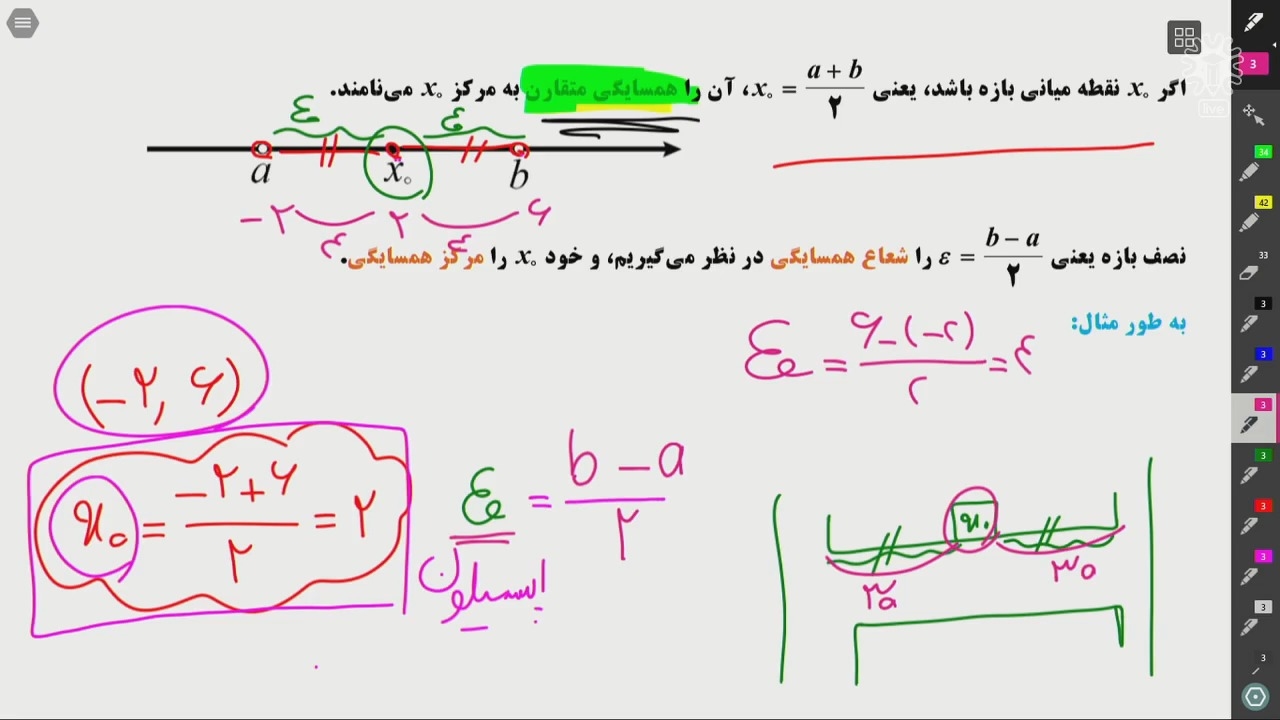 اگر x₀ نقطه میانی بازه باشد، یعنی x₀ = (a + b)/۲، آن را همسایگی متقارن به مرکز x₀ می‌نامند.
ε ε
a x₀ b
-۲ ۲ ۶
۴ ۴
نصف بازه یعنی ε = (b − a)/۲ را شعاع همسایگی در نظر می‌گیریم، و خود x₀ را مرکز همسایگی.
به طور مثال:
ε = (۶-(-۲))/۲ = ۴
(-۲, ۶)
x₀ = (-۲+۶)/۲ = ۲
ε = (b - a)/۲
اپسیلون
x₀
live
3
34
42
33
3
3
3
3
3
3
3
3